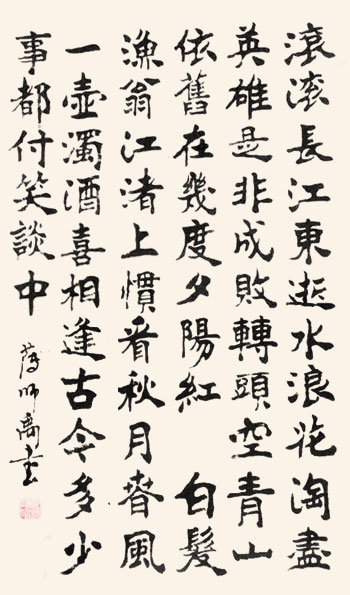 滾滚長江東逝水浪花淘盡
英雄是非成敗轉頭空青山
依舊在幾度夕陽紅 白髮
漁翁江渚上慣看秋月春風
一壺濁酒喜相逢古今多少
事都付笑談中